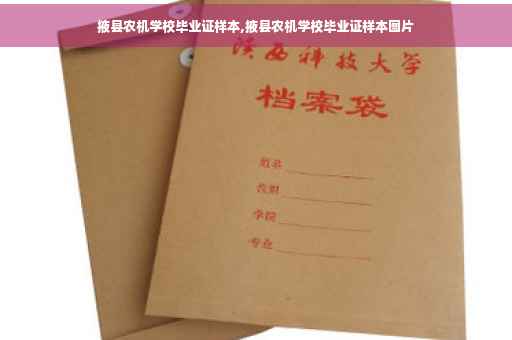 掖县农机学校毕业证样本,掖县农机学校毕业证样本图片
陕西科技大学
档案袋
姓名
学院
专业